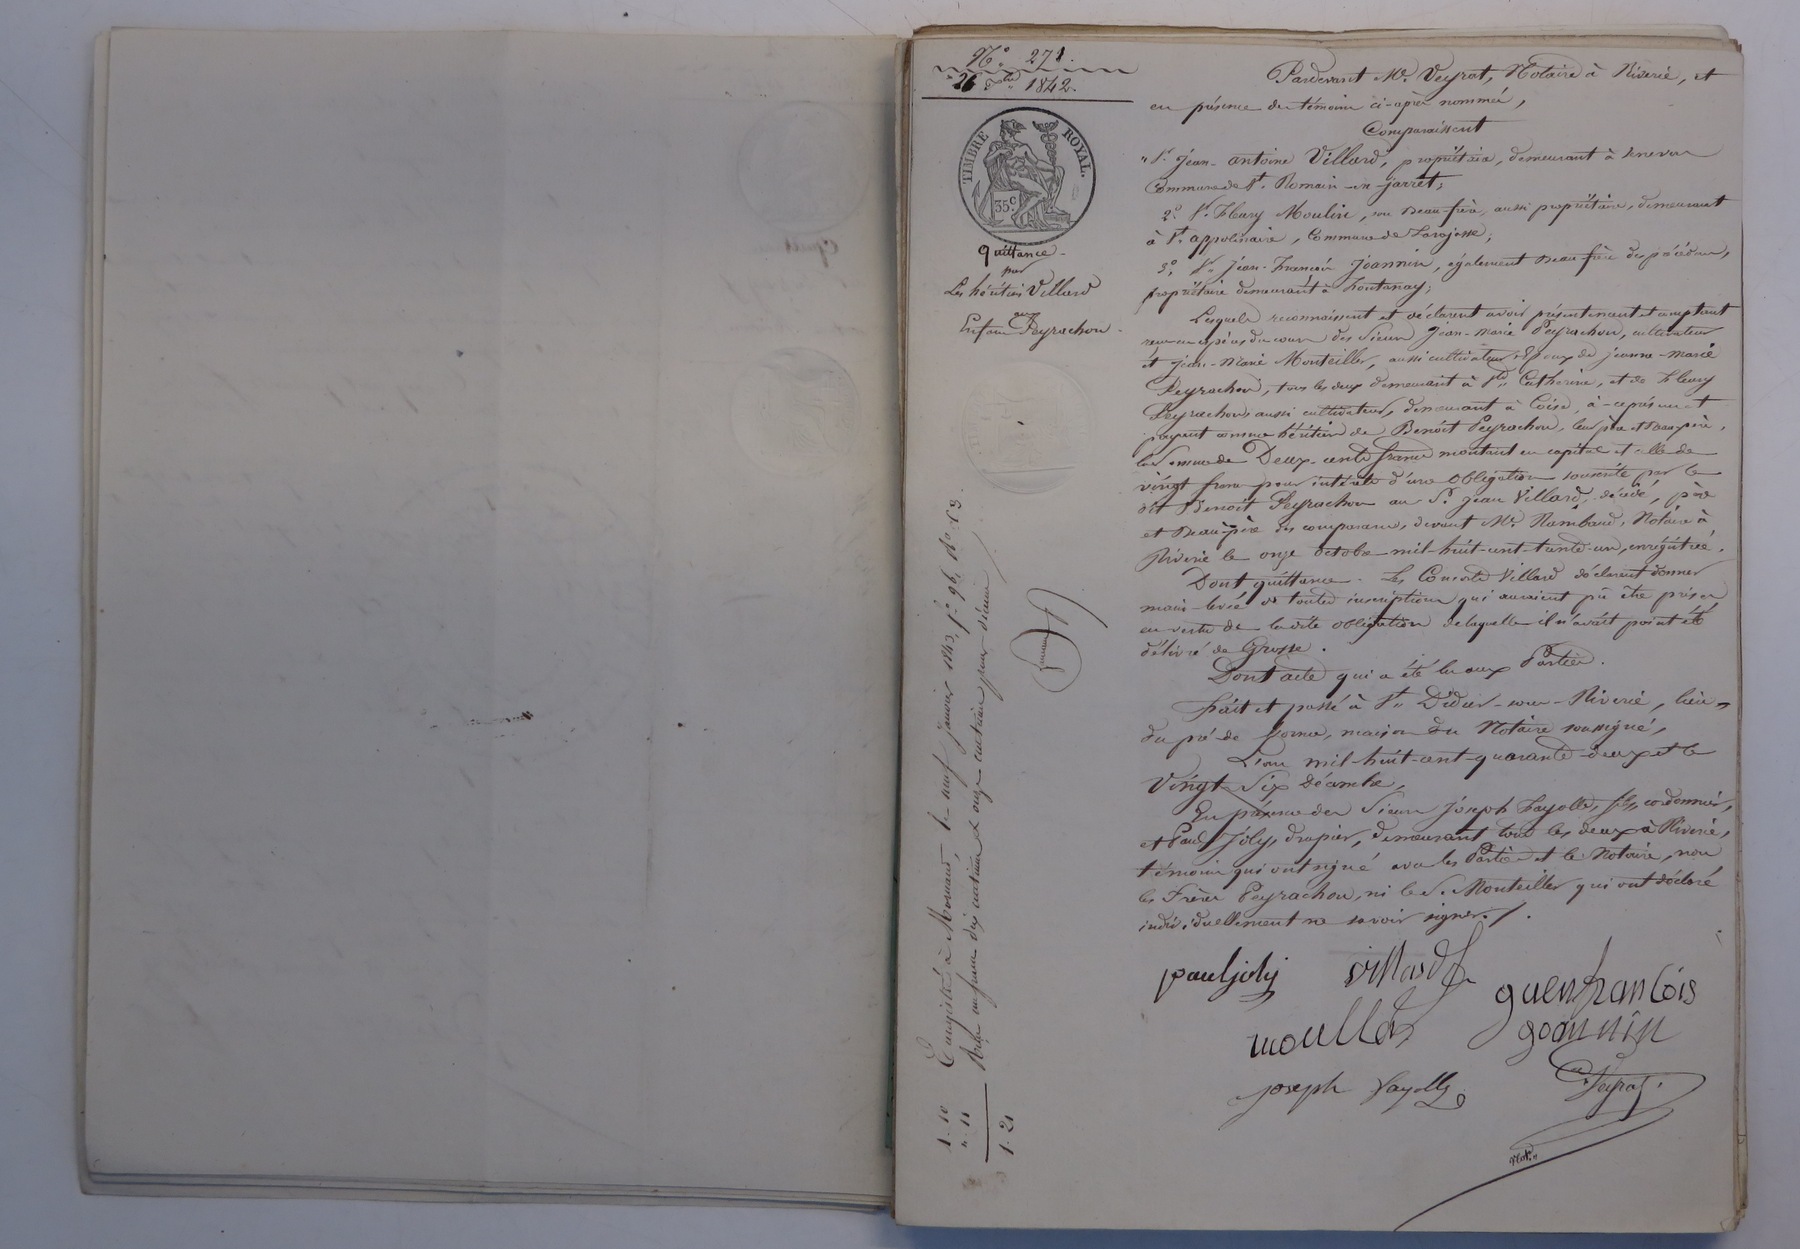 N° 271.
26 Xbre 1842.
TIMBRE ROYAL.
35 c
Quittance
par
Les héritiers Villard
aux
Enfans Peyrachon
Pardevant Me. Veyrat, Notaire à Riverie, et
en présence des témoins ci-après nommés,
Comparaissent
1° Jean-antoine Villard, propriétaire, demeurant à
Commune de St. Romain-en-jarret;
2° Sr. Fleury Moulin, son Beau-frère, aussi propriétaire, demeurant
à St. appolinaire, Commune de Larajasse;
3° Sr. Jean-François Joannin, également Beau frère des précédens,
propriétaire demeurant à Fontanay;
Lesquels reconnaissent et déclarent avoir présentement et comptant
reçu en espèces du cours des Sieurs Jean-Marie Peyrachon, cultivateur
et Jean-Marie Monteiller, aussi cultivateur, Epoux de jeanne-marie
Peyrachon, tous les deux demeurant à Ste. Catherine, et de Fleury
Peyrachon, aussi cultivateur, demeurant à Coise, à ce présens et
payant comme héritiers de Benoît Peyrachon, leur père et beau père,
la Somme de Deux-cents francs montant en capital et celle de
vingt francs pour intérêts d'une Obligation souscrite par le
dit Benoît Peyrachon au Sr. Jean Villard, décédé, père
et Beau-père des comparans, devant Me. Rambaud, Notaire à
Riverie le onze octobre mil-huit-cent-trente-un, enregistrée.
Dont quittance. Les Consorts Villard déclarent donner
main-levée de toutes inscriptions qui auraient pû être prises
en vertu de la dite obligation de laquelle il n'avait point été
délivré de Grosse.
Dont acte qui a été lu aux Parties.
Fait et passé à St. Didier-sous-Riverie, lieu
du pré de , maison du Notaire soussigné,
L'an mil-huit-cent-quarante-deux et le
Vingt Six Décembre,
En présence des Sieurs Joseph Fayolle, fils, cordonnier,
et Paul Joly, drapier, demeurant tous les deux à Riverie,
témoins qui ont signé avec les Parties et le Notaire, non
les Frères Peyrachon, ni le Sr. Monteiller qui ont déclaré
individuellement ne savoir signer./.
paul joly villard
guenfrancois
goannin
moullin
joseph fayolle
Veyrat
not.re
Enregistré à Mornant, le neuf janvier 1843, f° 96, Ro. C 3.
Reçu un franc dix centimes & onze centimes pour décime
1.10
".11
1.21